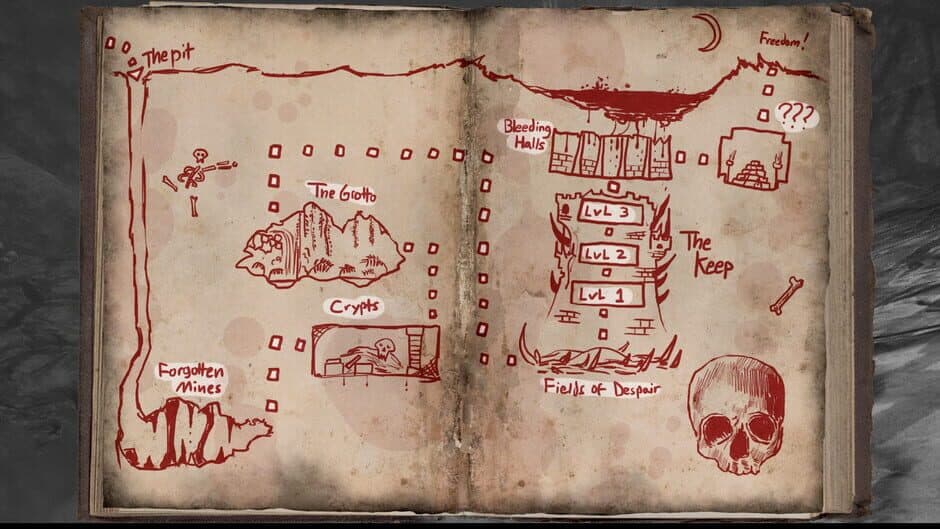 The pit
The Grotto
Crypts
Forgotten
Mines
Freedom!
???
Bleeding
Halls
LvL 3
LvL 2
LvL 1
The
Keep
Fields of Despair